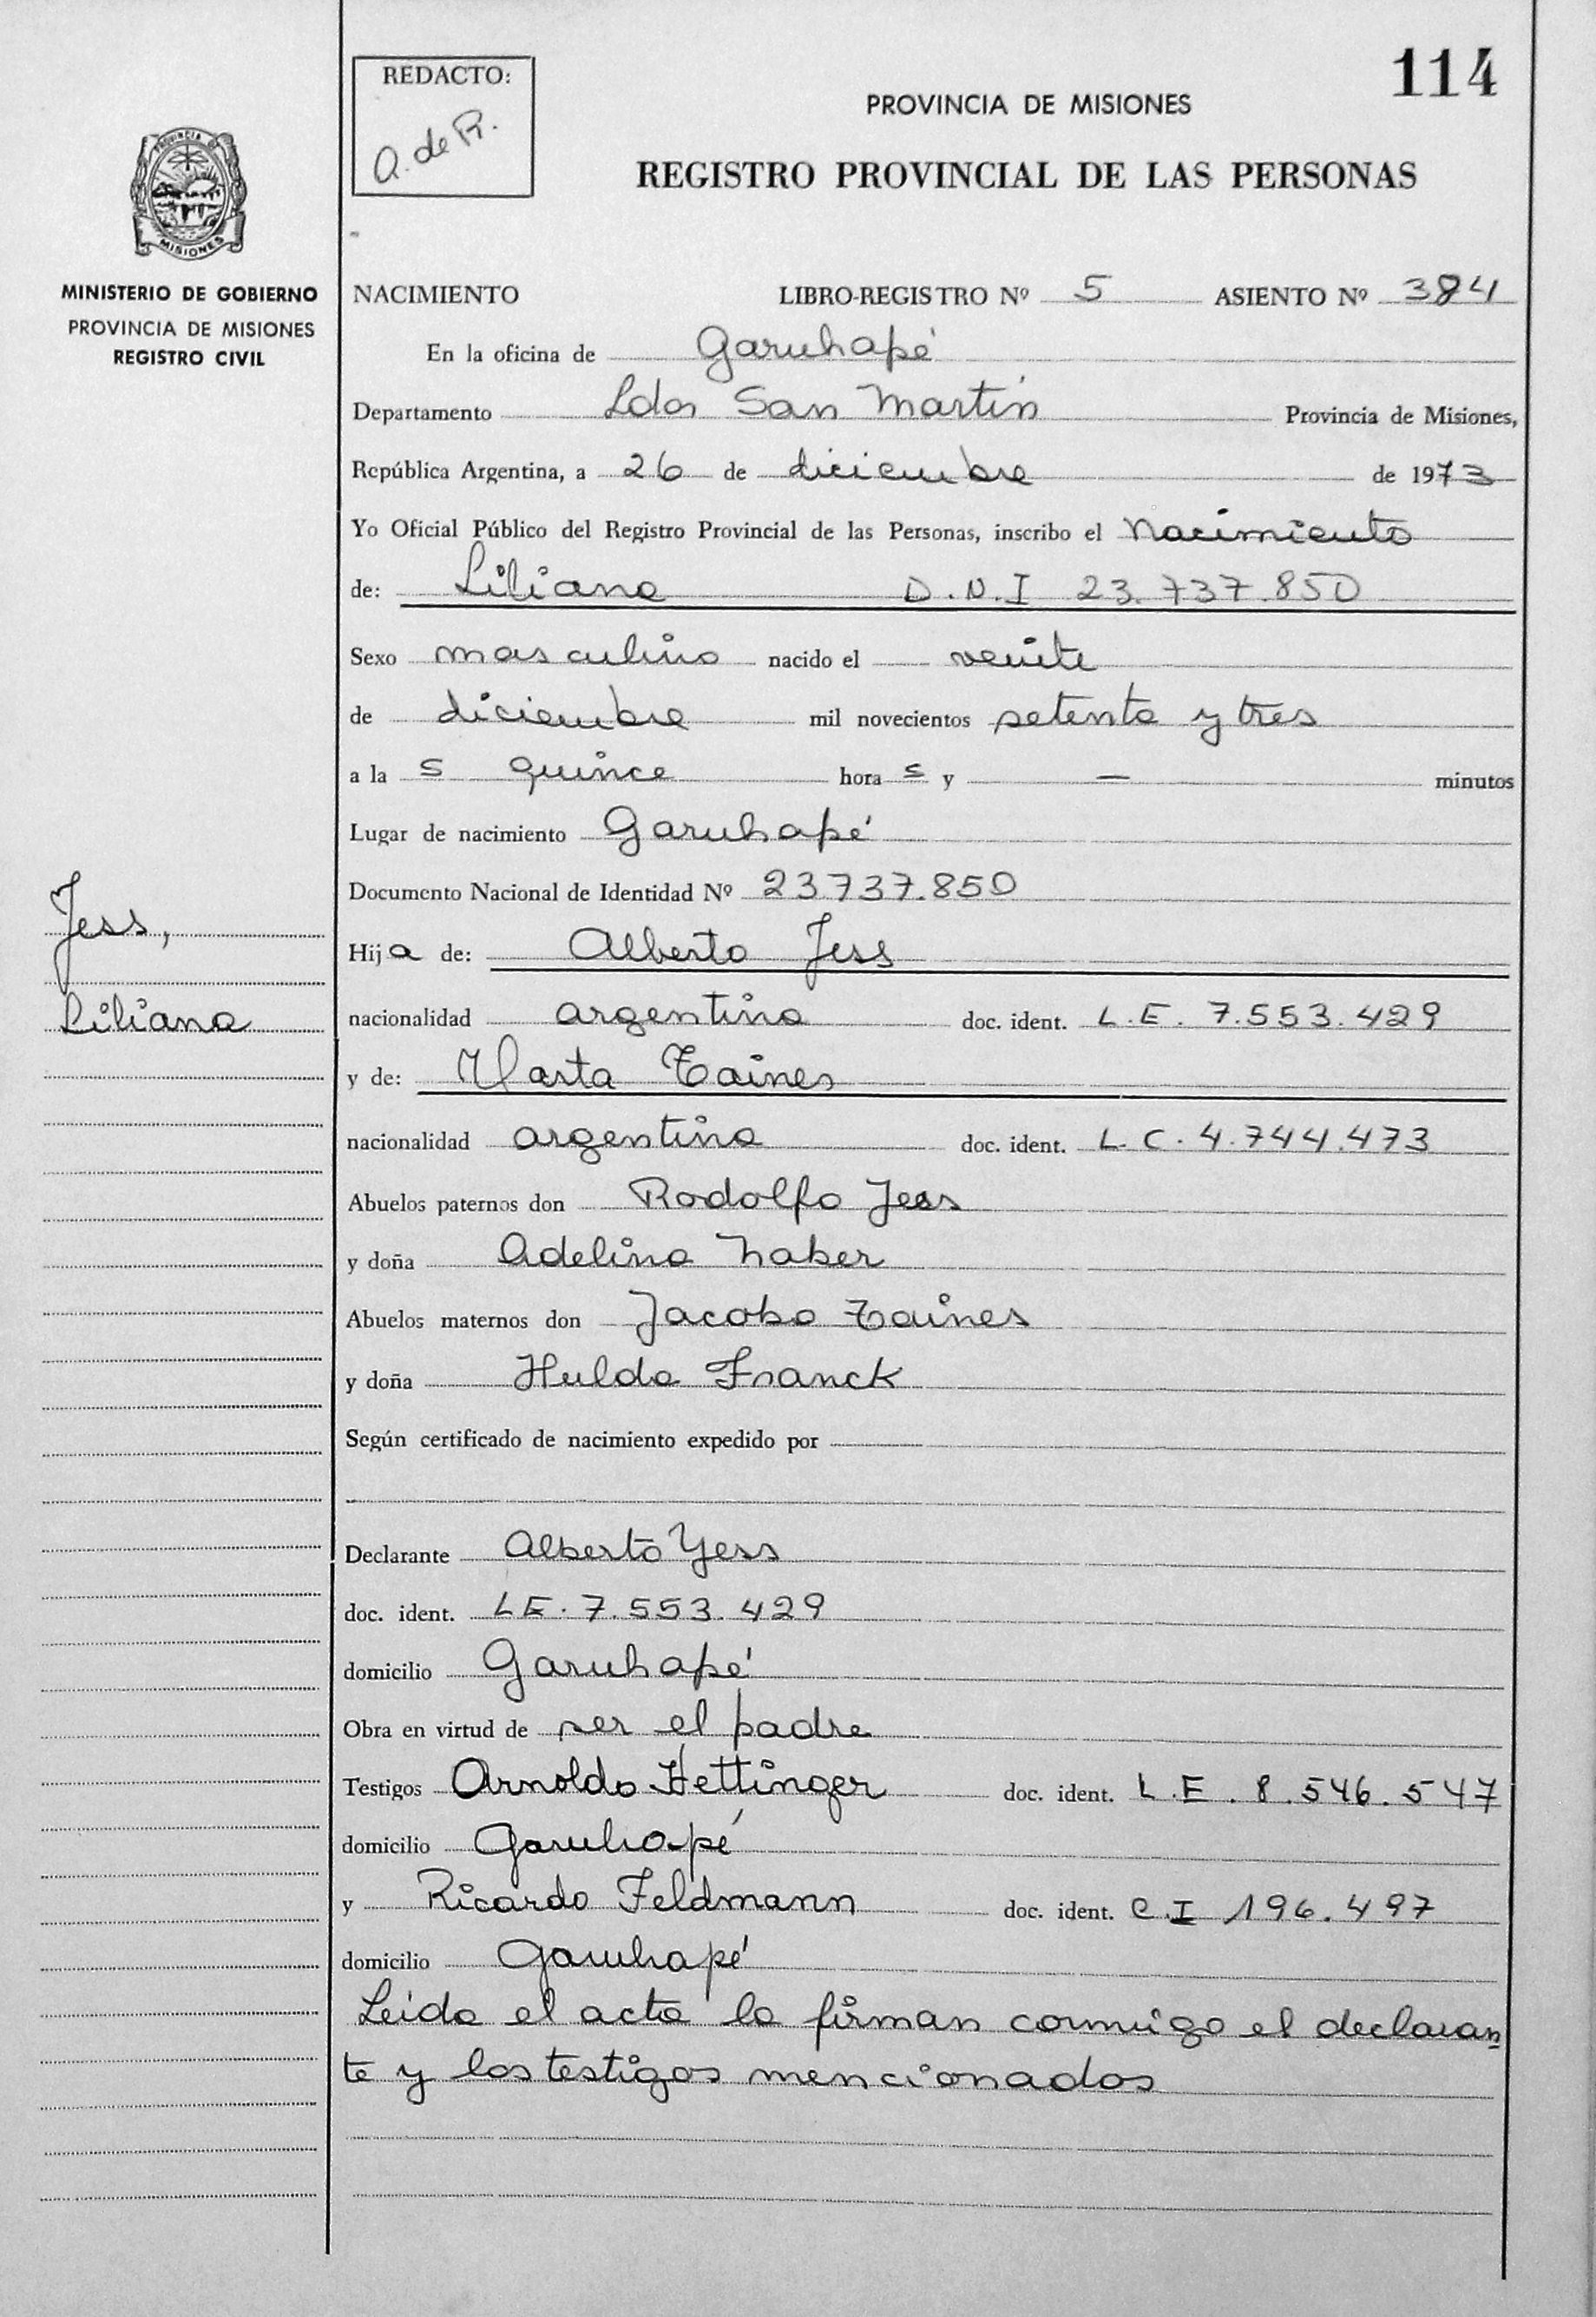 114
REDACTO:
A. de R.
PROVINCIA DE MISIONES
REGISTRO PROVINCIAL DE LAS PERSONAS
PROVINCIA DE
MISIONES
MINISTERIO DE GOBIERNO
PROVINCIA DE MISIONES
REGISTRO CIVIL
NACIMIENTO LIBRO-REGISTRO Nº 5 ASIENTO Nº 384
En la oficina de Garuhapé
Departamento Ldor San Martín Provincia de Misiones,
República Argentina, a 26 de diciembre de 1973
Yo Oficial Público del Registro Provincial de las Personas, inscribo el Nacimiento
de: Liliana D.N.I 23.737.850
Sexo masculino nacido el veinte
de diciembre mil novecientos setenta y tres
a la s quince hora s y — minutos
Lugar de nacimiento Garuhapé
Documento Nacional de Identidad Nº 23.737.850
Jess,
Liliana
Hija de: Alberto Jess
nacionalidad argentina doc. ident. L.E. 7.553.429
y de: Marta Taines
nacionalidad argentina doc. ident. L.C. 4.744.473
Abuelos paternos don Rodolfo Jess
y doña Adelina Naber
Abuelos maternos don Jacobo Taines
y doña Hulda Franck
Según certificado de nacimiento expedido por
Declarante Alberto Yess
doc. ident. LE. 7.553.429
domicilio Garuhapé
Obra en virtud de ser el padre
Testigos Arnoldo Hettinger doc. ident. L.E. 8.546.547
domicilio Garuhapé
y Ricardo Feldmann doc. ident. C.I 196.497
domicilio Garuhapé
Leida el acta la firman conmigo el declaran
te y los testigos mencionados